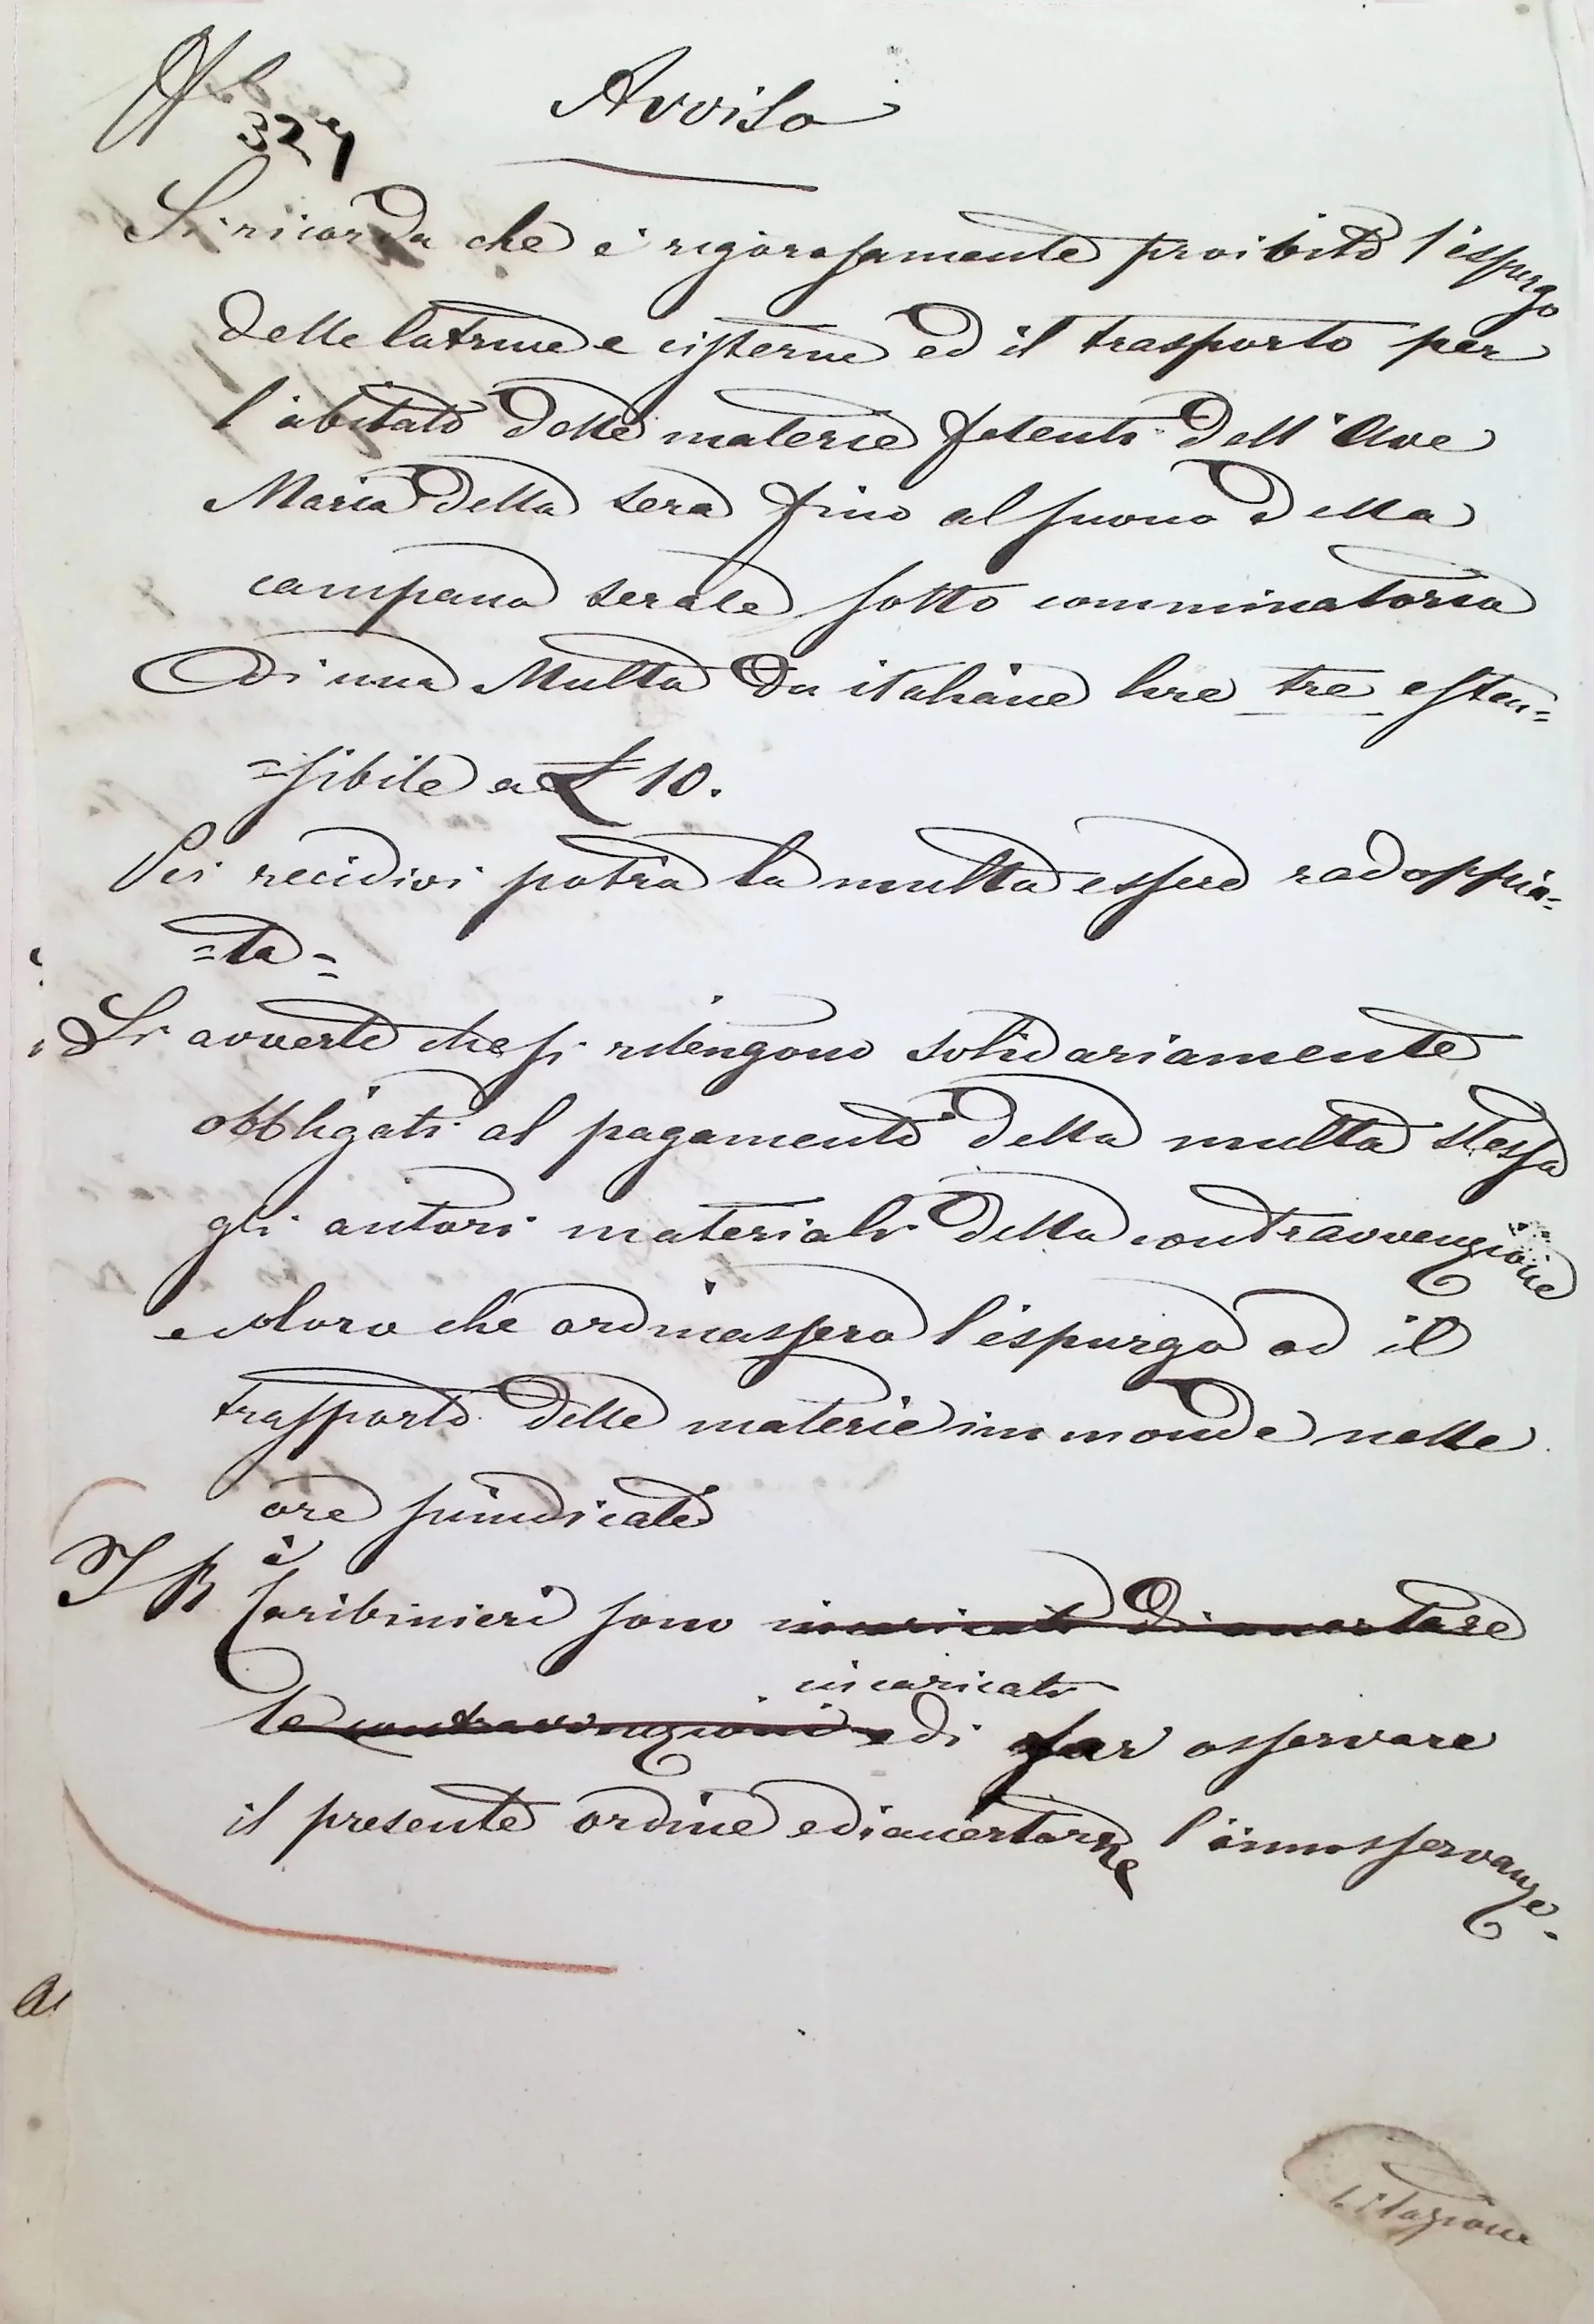 327
Avviso
Si ricorda che è rigorosamente proibito l'espurgo
delle latrine e cisterne ed il trasporto per
l'abitato delle materie fetenti dall'Ave
Maria della sera fino al suono della
campana serale sotto comminatoria
di una Multa da italiane lire tre esten=
=sibile a £ 10.
Pei recidivi potrà la multa essere radoppia=
=ta=
Si avverte che si ritengono solidariamente
obbligati al pagamento della multa stessa
gli autori materiali della contravvenzione
e coloro che ordinassero l'espurgo ed il
trasporto delle materie immonde nelle
ore suindicate
I R Caribinieri sono incaricati di accertare
incaricati
le contravvenzioni e di far osservare
il presente ordine e di accertarne l'innosservanza.